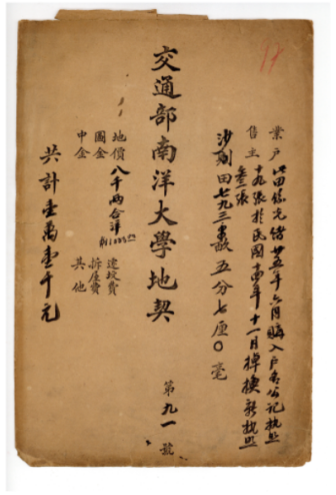 業戶 此田係光緒廿五年六月購入戶名公記執照
售主 十九張於民國十四年十一月掉換新執照
張
田七九三畝五分七厘〇毫
交通部南洋大學地契 第九一號
地價 八千兩合洋 遷墳費
圖金 拆屋費
中金 其他
共計壹萬壹千元